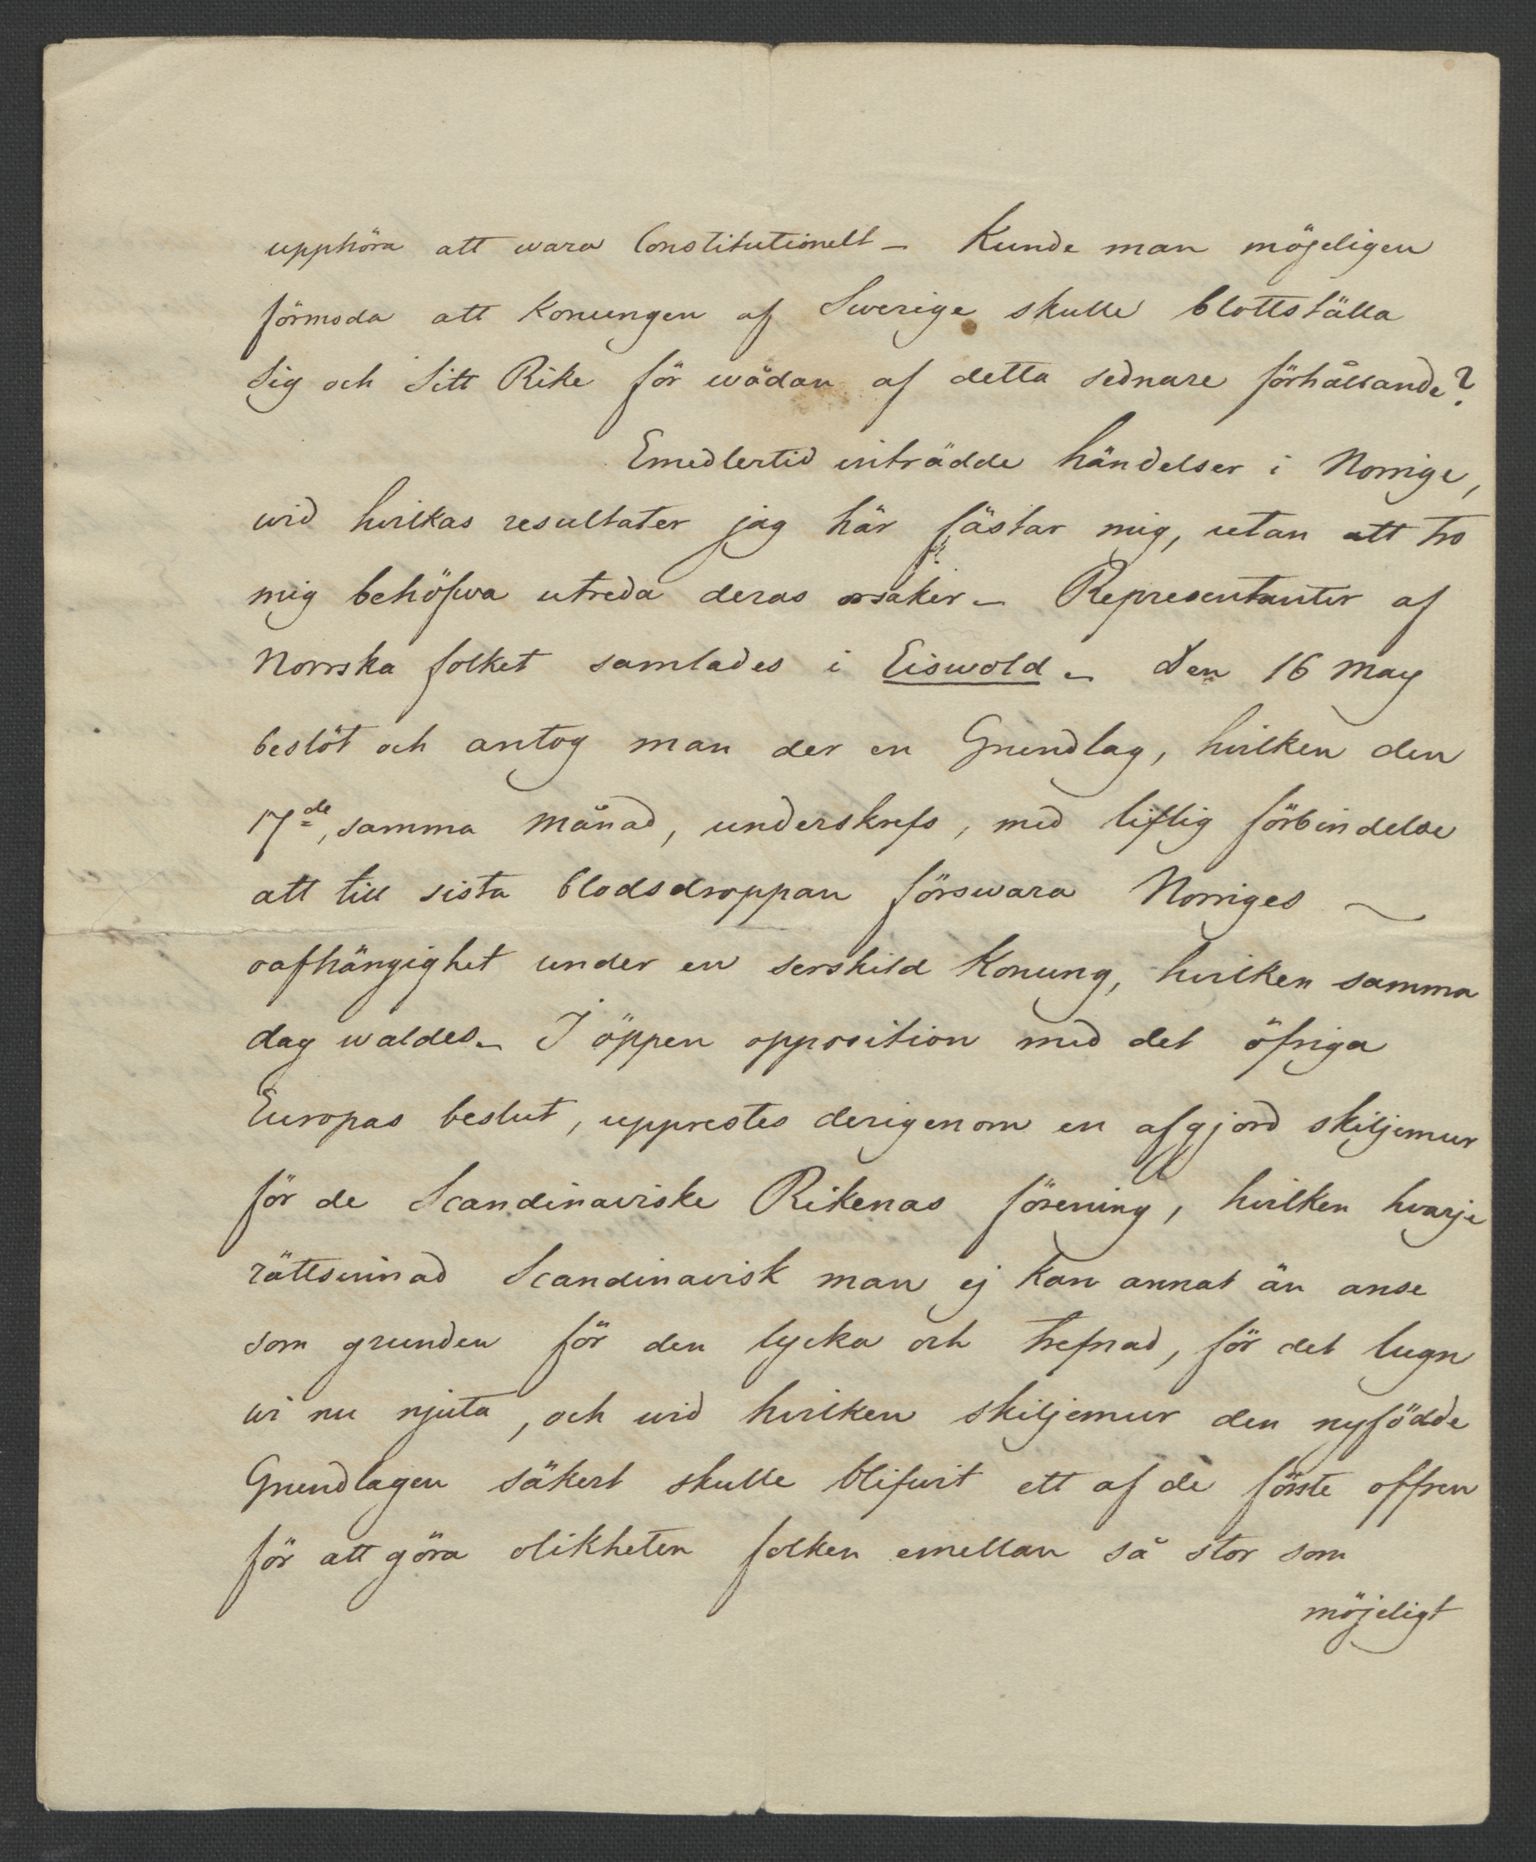 upphöra att wara Constitutionelt – Kunde man möjeligen
förmoda att Konungen af Swerige skulle blottställa
Sig och Sitt Rike för wådan af detta sednare förhållande?
Emedlertid inträdde händelser i Norrige,
wid hvilkas resultater jag här fästar mig, utan att tro
mig behöfwa utreda deras orsaker – Representanter af
Norrska folket samlades i Eiswold – Den 16 May
beslöt och antog man der en Grundlag, hvilken den
17de, samma månad, underskrefs, med liflig förbindelse
att till sista blodsdroppan förswara Norriges –
oafhängighet under en serskild Konung, hvilken samma
dag waldes – I öppen opposition med det öfriga
Europas beslut, upprestes derigenom en afgjord skiljemur
för de Scandinaviske Rikenas förening, hvilken hvarje
rättsinnad Scandinavisk man ej kan annat än anse
som grunden för den lycka och trefnad, för det lugn
wi nu njuta, och wid hvilken skiljemur den nyfödde
Grundlagen säkert skulle blifvit ett af de förste offren
för att göra olikheten folken emellan så stor som
möjeligt